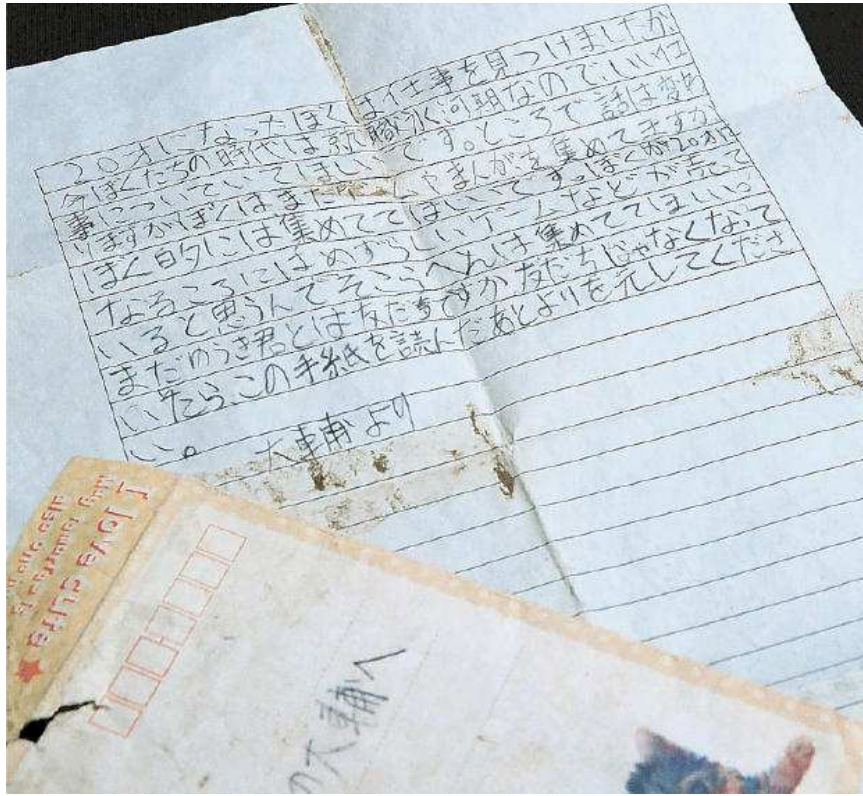 20才になったぼくは仕事を見つけましたか
今ぼくたちの時代は就職氷河期なので、いい仕
事についていてほしいです。ところで話は変わ
りますがぼくはまだやまんがを集めてますか
ぼく的には集めててほしいです。ぼくが20才に
なるころにはめずらしいゲームなどが売って
いると思うんでそこらへんは集めててほしい。
まだゆうき君とは友だちですか友だちじゃなくなって
いたら、この手紙を読んだあとよりを元してくださ
い。 大輔より
I love
の大輔へ